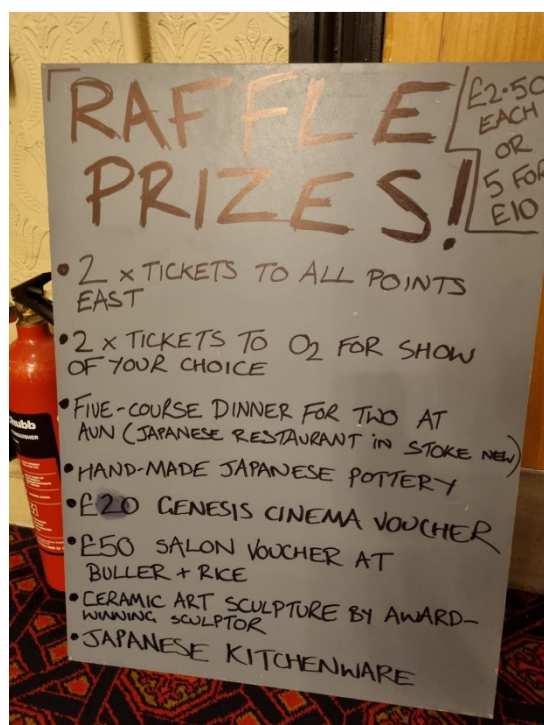 RAFFLE
PRIZES!
£2.50
EACH
OR
5 FOR
£10
• 2 x TICKETS TO ALL POINTS
EAST
• 2 x TICKETS TO O2 FOR SHOW
OF YOUR CHOICE
• FIVE-COURSE DINNER FOR TWO AT
AUN (JAPANESE RESTAURANT IN STOKE NEW)
• HAND-MADE JAPANESE POTTERY
• £20 GENESIS CINEMA VOUCHER
• £50 SALON VOUCHER AT
BULLER + RICE
• CERAMIC ART SCULPTURE BY AWARD-
WINNING SCULPTOR
• JAPANESE KITCHENWARE